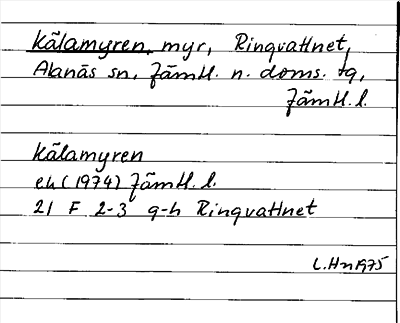 Kålamyren, myr, Ringvattnet,
Alanäs sn, Jämtl. n. doms. tg,
Jämtl. l.
Kålamyren
ek (1974) Jämtl. l.
21 F 2-3 g-h Ringvattnet
L.Hn 1975